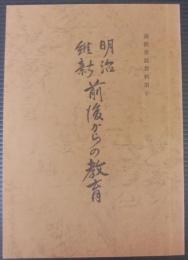 明治
維新
前後からの教育